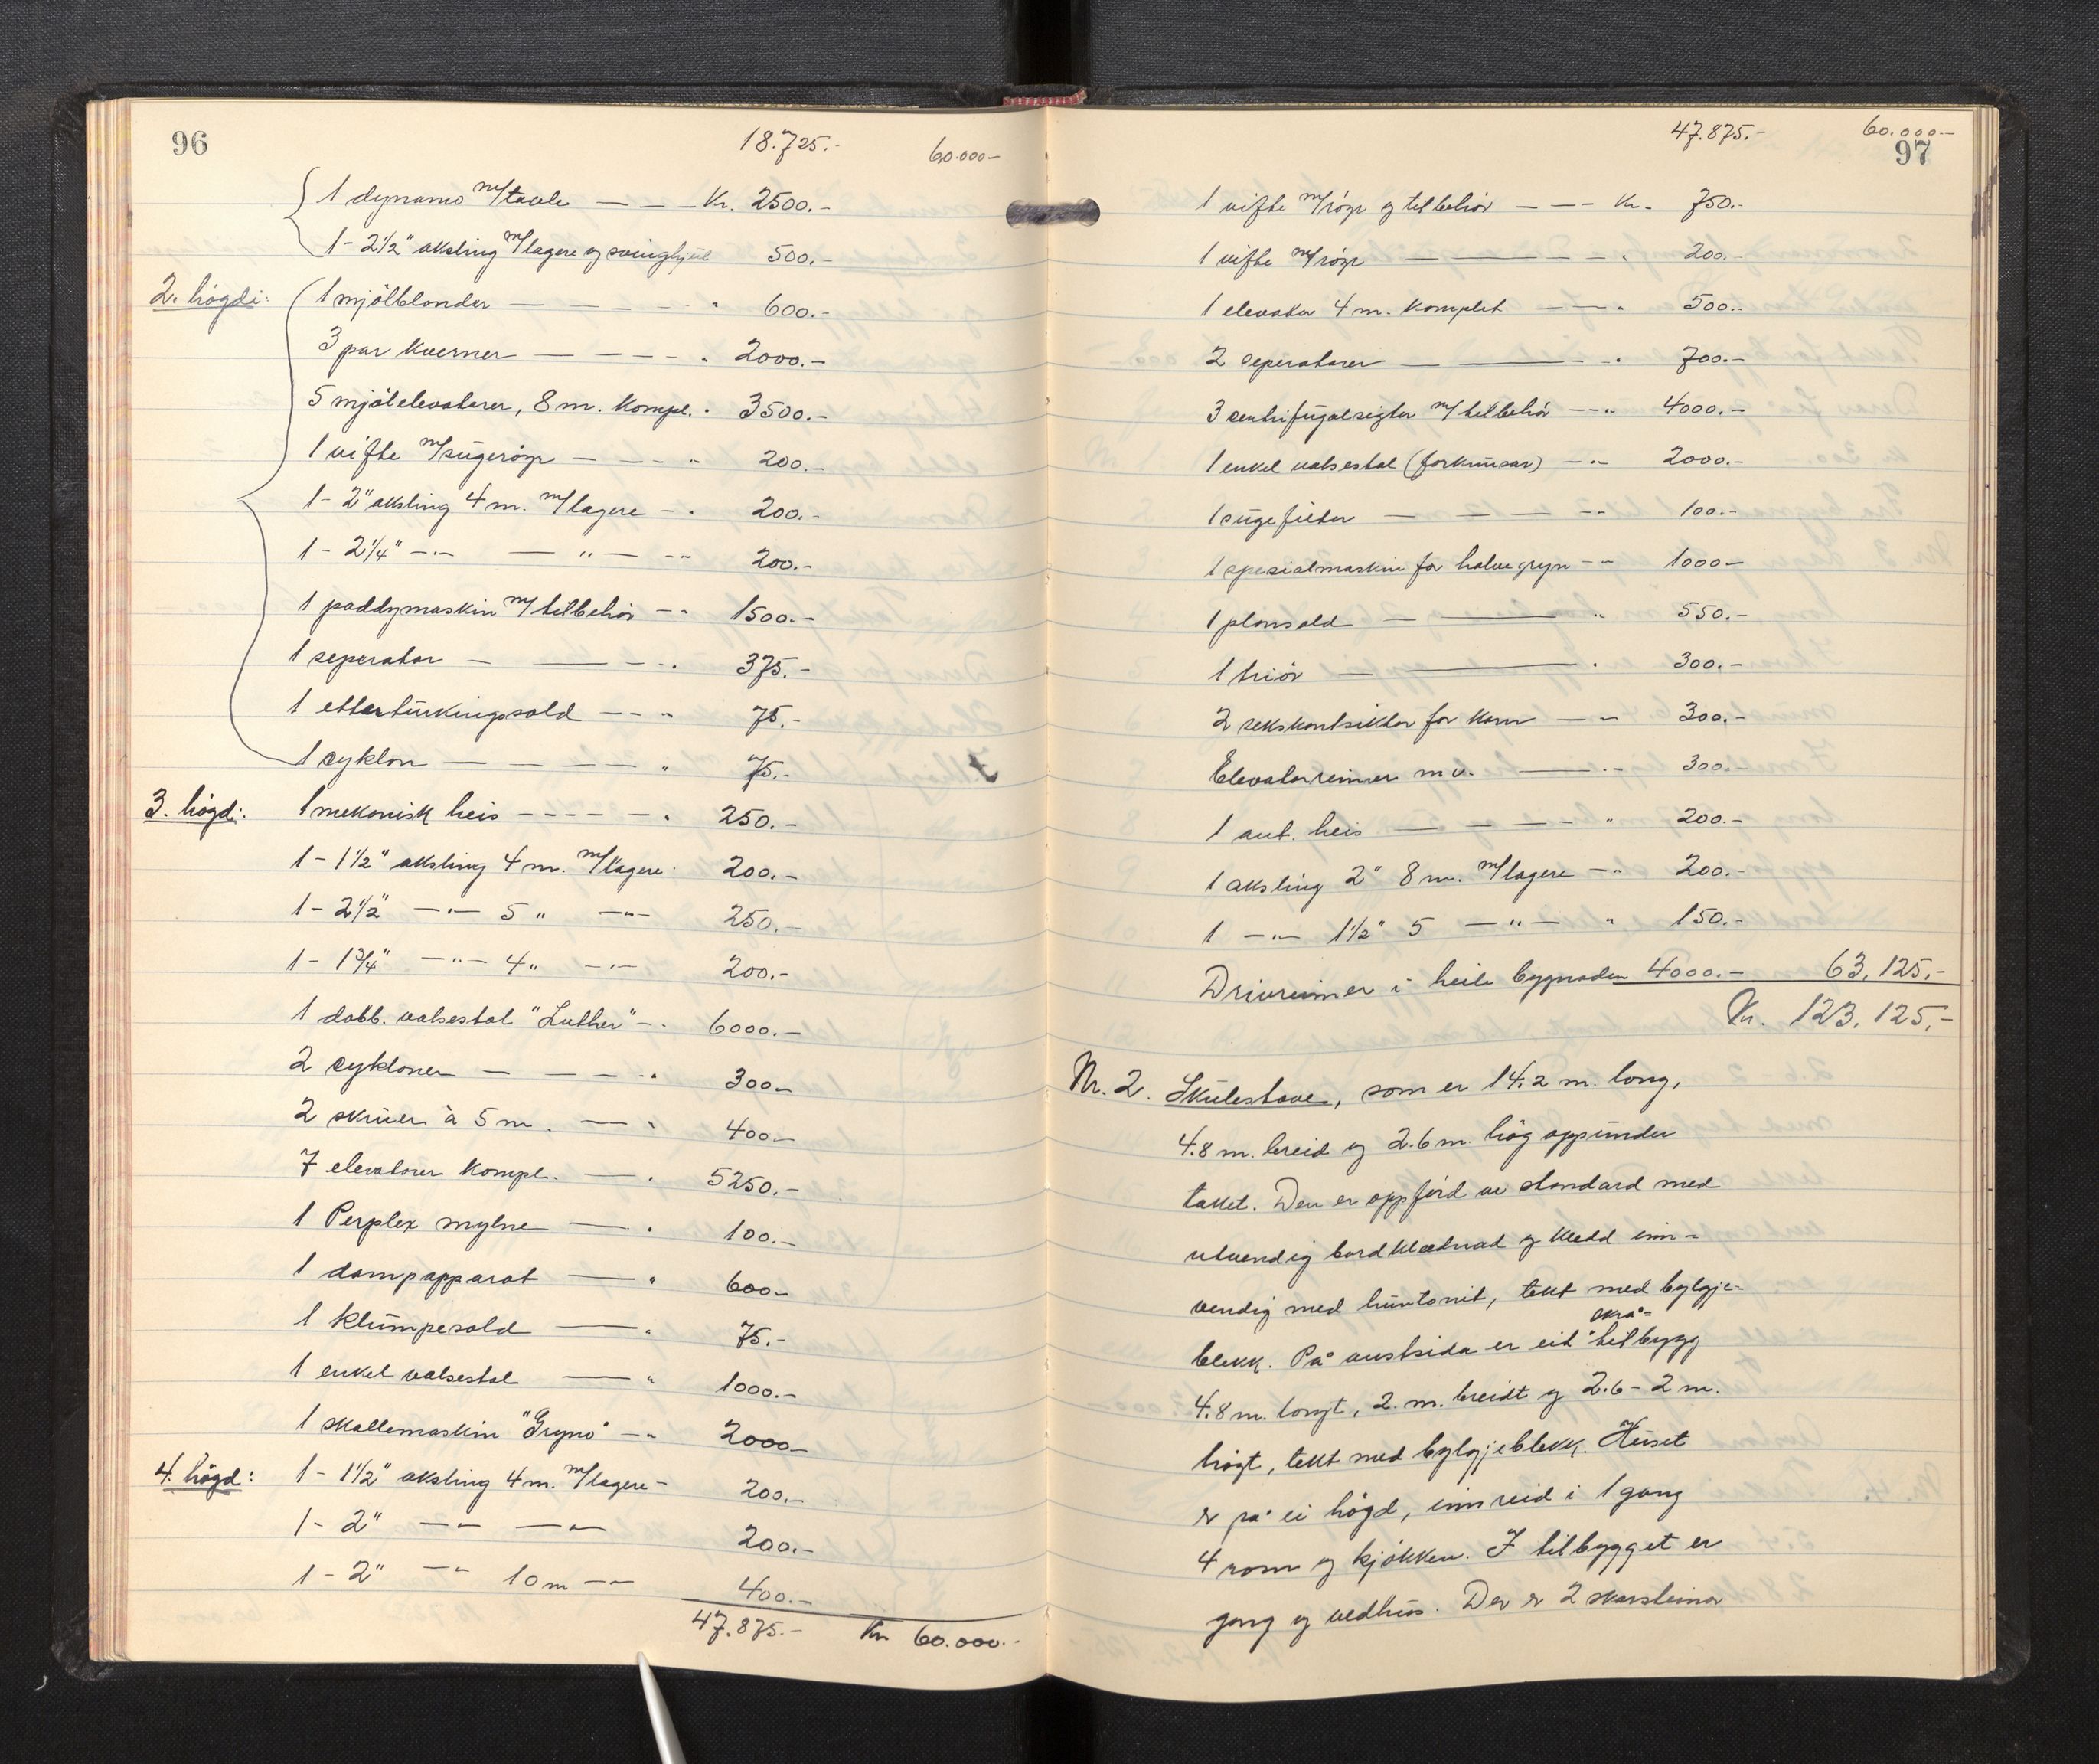 96
18.725.- 60.000-
1 dynamo m/tavle — — — Kr. 2500.-
1 - 2 1/2" aksling m/lagere og svinghjul 500.-
2. högdi: 1 mjölblander — — — — " 600.-
3 par kverner — — — — " 2000.-
5 mjölelevatorer, 8 m. kompl. " 3500.-
1 vifte m/sugeröyr — — — " 200.-
1 - 2" aksling 4 m. m/lagere - " 200.-
1 - 2 1/4" -"- — " — -"- 200.-
1 paddymaskin m/tilbehör - " 1500.-
1 seperator — — — " 375.-
1 ettertürkingsold — — " 75.-
1 cyklon — — — — " 75.-
3. högd: 1 mekanisk heis - - - - - " 250.-
1 - 1 1/2" aksling 4 m. m/lagere " 200.-
1 - 2 1/2" -"- 5 " -"- 250.-
1 - 1 3/4" -"- 4 " -"- 200.-
1 dobb. valsestol "Luther" - " 6000.-
2 cykloner — — — - " 300-
2 skruer à 5 m. — " 400-
7 elevatorer kompl. — " 5250.-
1 Perplex mylne — " 100.-
1 dampapparat — " 600-
1 klumpesold — " 75.-
1 enkel valsestol — " 1000.-
1 skallemaskin "Gryno" - " 2000-
4. högd: 1 - 1 1/2" aksling 4 m. m/lagere - 200.-
1 - 2" -"- -"- 200.-
1 - 2" -"- 10 m -"- 400.-
47.875.- Kr 60.000.-
47.875.- 60.000-
97
1 vifte m/röyr og tilbehör — — — Kr. 750.-
1 vifte m/röyr — — — " 200.-
1 elevator 4 m. komplet — — " 500.-
2 seperatorer — — — " 700.-
3 sentrifugalsigter m/tilbehör - - " 4000.-
1 enkel valsestol (forknusar) - " 2000.-
1 sugefilter — — — - " 100.-
1 spesialmaskin for halve gryn - " 1000-
1 plansold — — " 550.-
1 triör — — " 300.-
2 sekskantsiktor for korn — " 300.-
Elevatorreimer m.v. — - " 300.-
1 aut. heis — — — — " 200.-
1 aksling 2" 8 m. m/lagere - " 200.-
1 -"- 1 1/2" 5 — " — " 150.-
Drivreimer i heile bygnaden 4000.- 63.125,-
Kr. 123.125,-
Nr. 2. Skulestove, som er 14.2 m. long,
4.8 m. breid og 2.6 m. hög oppunder
taket. Den er oppförd av standard med
utvendig bordklædnad og kledd inn-
vendig med huntonit, tekt med bylgje-
blekk. På austsida er eit skrå-tilbygg
4.8 m. longt, 2. m. breidt og 2.6 - 2 m.
högt, tekt med bylgjeblekk. Huset
er på ei högd, innreid i 1 gang
4 rom og kjökken. I tilbygget er
gang og vedhus. Der er 2 skorsteinar